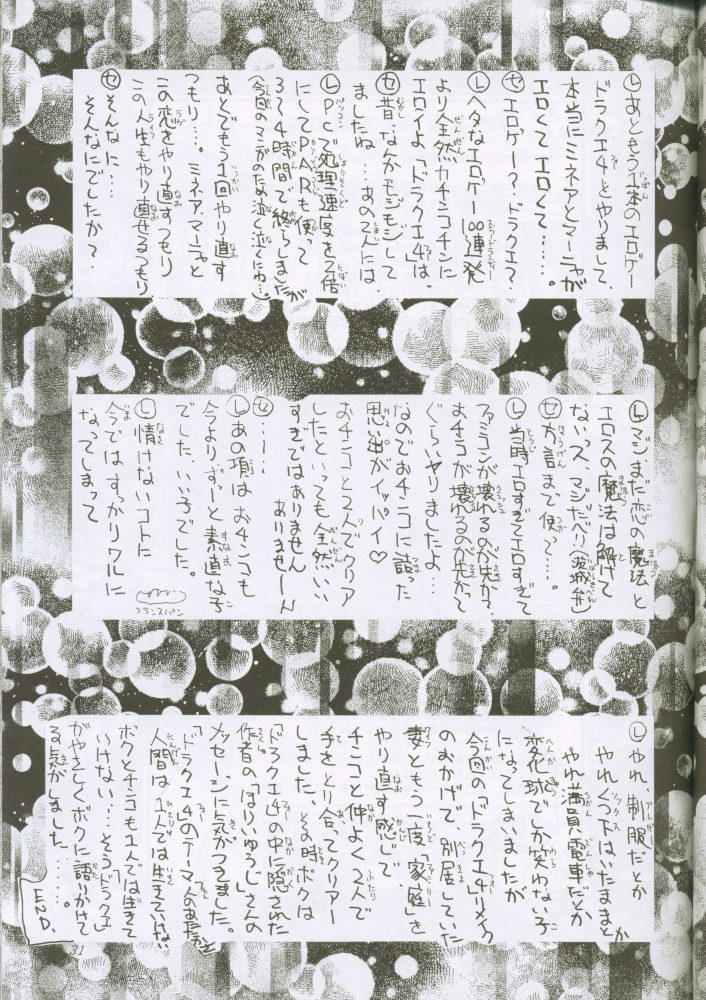 Ⓛあともう1本のエロゲー
ドラクエ4とやりまして、
本当にミネアとマーニャが
エロくてエロくて……。
㋝エロゲー？ドラクエ？
Ⓛヘタなエロゲー100連発
より全然カチンコチンに
エロイよ「ドラクエ4」は。
㋝昔、なんかモジモジして
ましたね…あの2人には
ⓁPCで処理速度を2倍
にしてPARも使って
3て4時間で終らしましたが
(今回のマンガのため泣く泣くにゅ…)
あとでもう1回やり直す
つもり…。ミネア、マーニャと
この恋をやり直すつもり
この人生もやり直せるつもり
㋝そんなに…
そんなにでしたか？
Ⓛマジ、まだ恋の魔法と
エロスの魔法は解けて
ないっス、マジだべリ(茨城弁)
㋝方言まで使って…。
Ⓛ当時エロすぎてエロすぎて
ファミコンが壊れるのが先か？
おチコが壊れるのが先かって
ぐらいヤリましたよ…
なのでおチンコに誤った
思い出がイッパイ♡
おチンコと2人でクリア
したといっても全然いい
すぎではありません
ありませーん
㋝……
Ⓛあの頃はおチンコも
今よりずーと素直な子
でした、いい子でした。
Ⓛ情けないコトに
今ではすっかりワルに
なってしまって
フランスパン
Ⓛやれ、制服だとか
やれくつ下はいたままとか
やれ満員電車だとか
変化球でしか笑わない子
になってしまいましたが
今回の「ドラクエ4」リメイク
のおかげで、別居していた
妻ともう一度「家庭」を
やり直す感じで、
チンコと仲よく2人で
手をとり合ってクリアー
しました、その時ボクは
「ドラクエ4」の中に隠された
作者の「ほりいゆうじ」さんの
メッセージに気がつきました。
「ドラクエ4」のテーマ「人のあたたかさ」
人間は1人では生きていけない
ボクとチンコも1人では生きて
いけない…そう「ドラクエ」
がやさしくボクに語りかけて
る気がしました……。
END.
31